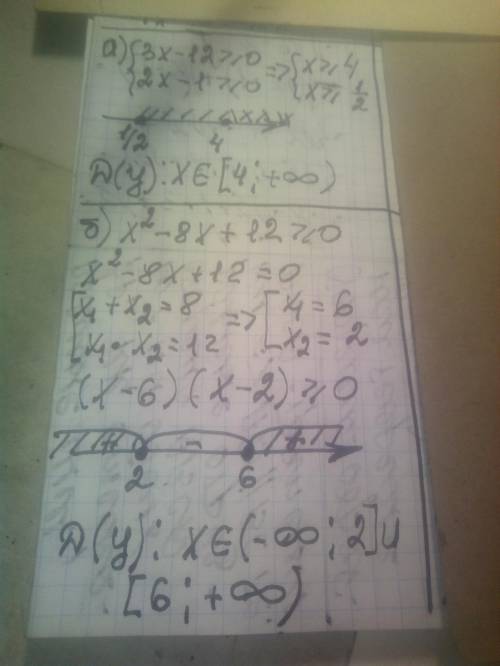 а) { 3x-12≥0 => { x≥4
{ 2x-1≥0 { x≥ 1/2
1/2 4
D(y): x∈[4;+∞)
б) x²-8x+12≥0
x²-8x+12=0
[ x₁+x₂=8 => [ x₁=6
[ x₁·x₂=12 [ x₂=2
(x-6)(x-2)≥0
+ - +
2 6
D(y): x∈(-∞;2]∪
[6;+∞)